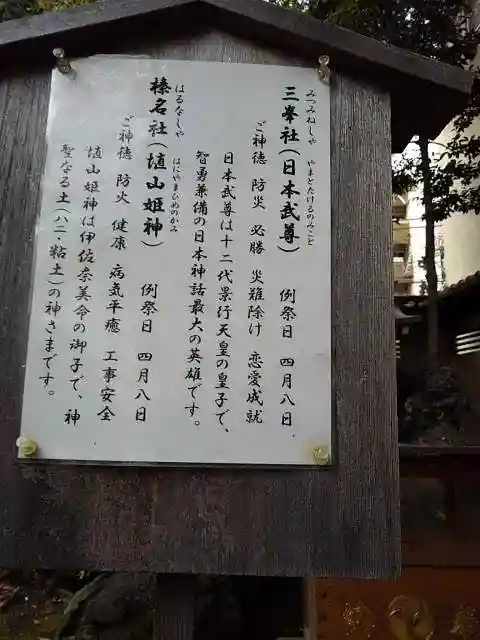 みつみねしゃ　やまとたけるのみこと
三峯社（日本武尊）　例祭日　四月八日
ご神徳　防災　必勝　災難除け　恋愛成就
日本武尊は十二代景行天皇の皇子で、
智勇兼備の日本神話最大の英雄です。
はるなしゃ　はにやまひめのかみ
榛名社（埴山姫神）　例祭日　四月八日
ご神徳　防火　健康　病気平癒　工事安全
埴山姫神は伊佐奈美命の御子で、神
聖なる土（ハニ・粘土）の神さまです。